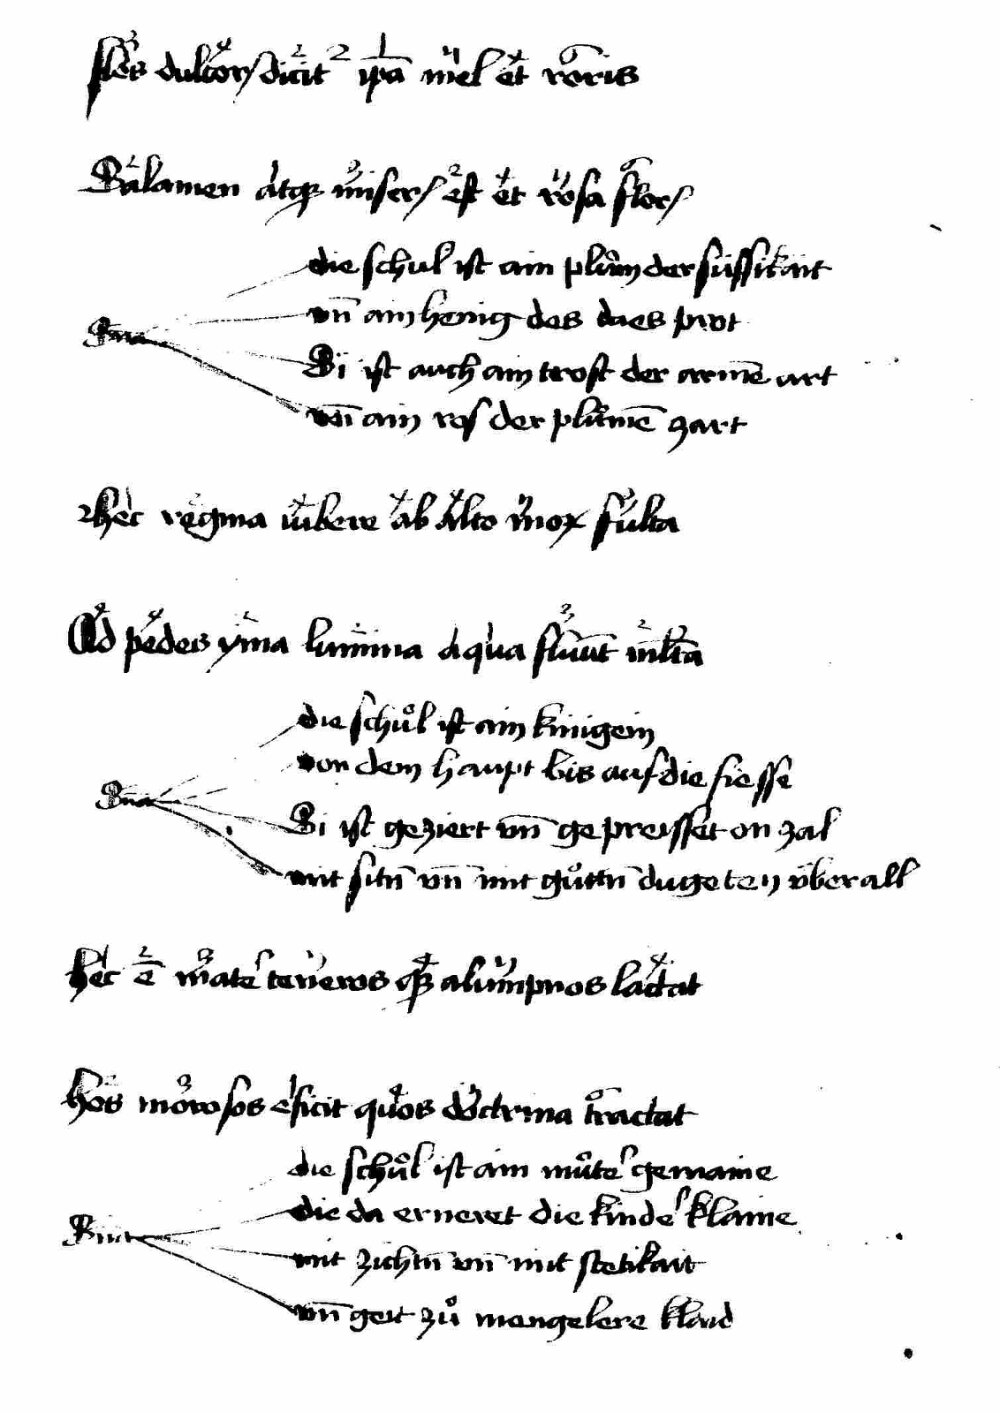 flos dulcor dicit ipa mel et roris
Solamen atque miser est et rosa flor
die schul ist ain plum der süssikait
vn̄ ain henig des daes prot
Rima
Si ist auch ain trost der armē art
vn̄ ain ros der plůmē zart
hec regina iubere ab alto mox fulta
Ad pedes yma lumina aqua fluūt mlta
die schůl ist ain kinigein
von dem haupt bis auf die fiesse
Rima
Si ist geziert vn̄ gepreisset on zal
mit sitn̄ vn̄ mit gůttn̄ dugeten vberall
hec ē mater teneros que alumpnos lactat
hos morosos efficit quos doctrina tractat
die schůl ist ain můter gemaine
die da erneret die kinder klaine
Rima
mit zichtn̄ vn̄ mit stetikait
vn̄ geit zů mengelere klaid